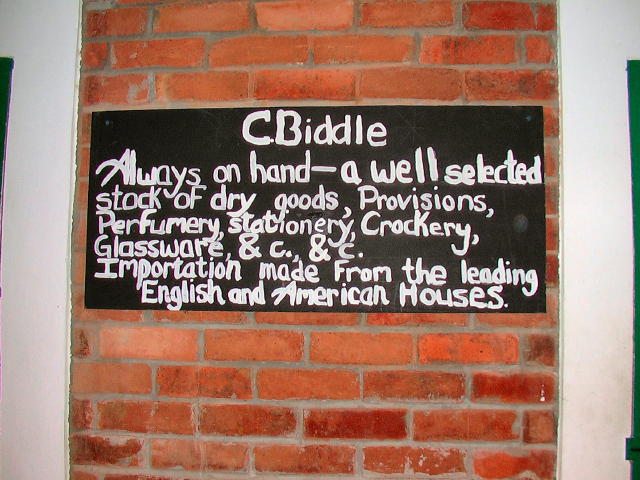 C.Biddle
Always on hand—a well selected
stock of dry goods, Provisions,
Perfumery, stationery, Crockery,
Glassware, & c., & c.
Importation made From the leading
English and American Houses.